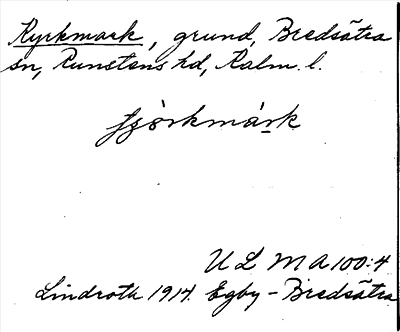 Kyrkmark, grund, Bredsätra
sn, Runstens hd, Kalm. l.
ULMA 100:4
Lindroth 1914. Egby-Bredsätra